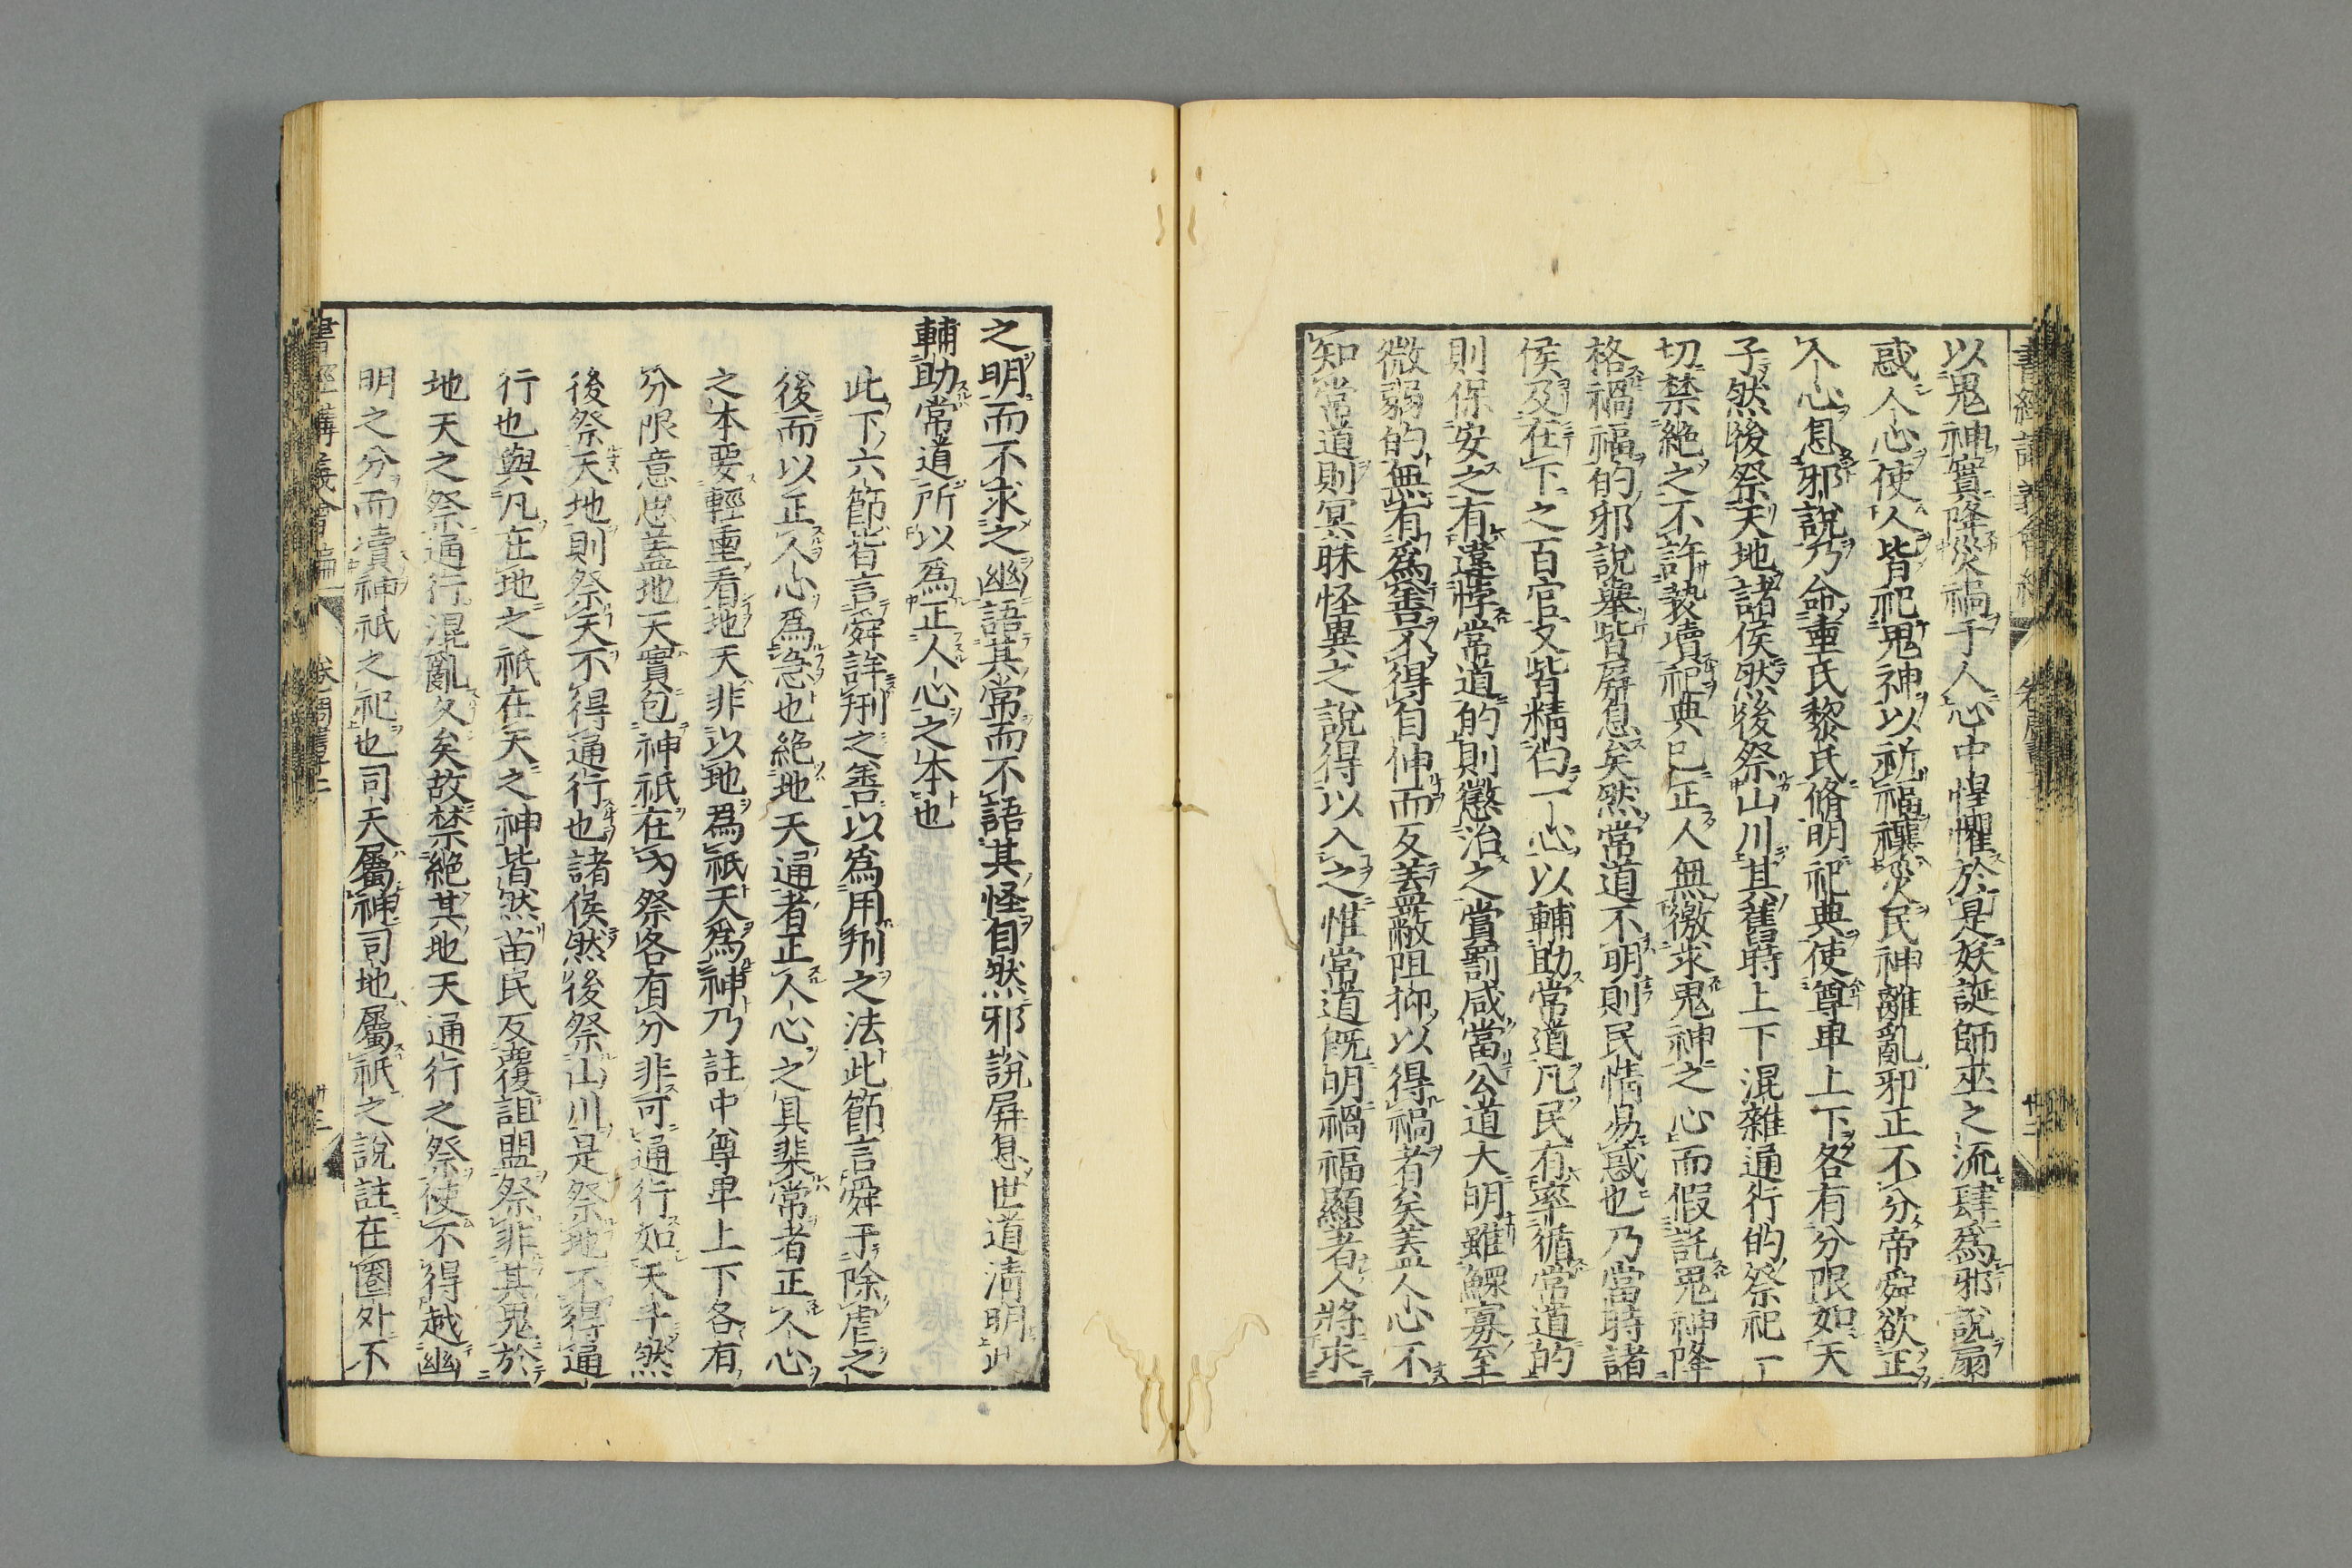 以鬼神實降災禍于人心中惶懼於是妖誕師巫之流肆為邪說扇
惑人心使人皆祀鬼神以祈福禳災民神離亂邪正不分帝舜欲正
人心息邪說乃命重氏黎氏脩明祀典使尊卑上下各有分限如天
子然後祭天地諸侯然後祭山川其舊時上下混雜通行的祭祀一
切禁絶之不許褻瀆祀典已正人無徼求鬼神之心而假託鬼神降
格禍福的邪說舉皆屏息矣然常道不明則民情易惑也乃當時諸
侯及在下之百官又皆精白一心以輔助常道凡民有率循常道的
則保安之有違悖常道的則懲治之賞罰咸當公道大明雖鰥寡至
微弱的無有為善不得自伸而反盖蔽阻抑以得禍者矣盖人心不
知常道則冥昧怪異之說得以入之惟常道既明禍福顯著人將求
之明而不求之幽語其常而不語其怪自然邪說屏息世道清明此
輔助常道所以為正人心之本也
此下六節皆言舜詳刑之善以為用刑之法此節言舜于除虐之
後而以正人心為急也絶地天通者正人心之具棐常者正人心
之本要輕重看地天非以地為祇天為神乃註中尊卑上下各有
分限意思盖地天實包神祇在內祭各有分非可通行如天子然
後祭天地則祭天不得通行也諸侯然後祭山川是祭地不得通
行也與凡在地之祇在天之神皆然苗民反覆詛盟祭非其鬼於
地天之祭通行混亂久矣故禁絶其地天通行之祭使不得越幽
明之分而瀆神祇之祀也司天屬神司地屬祇之說註在圈外不
書經講義會編 卷周書二 廿三